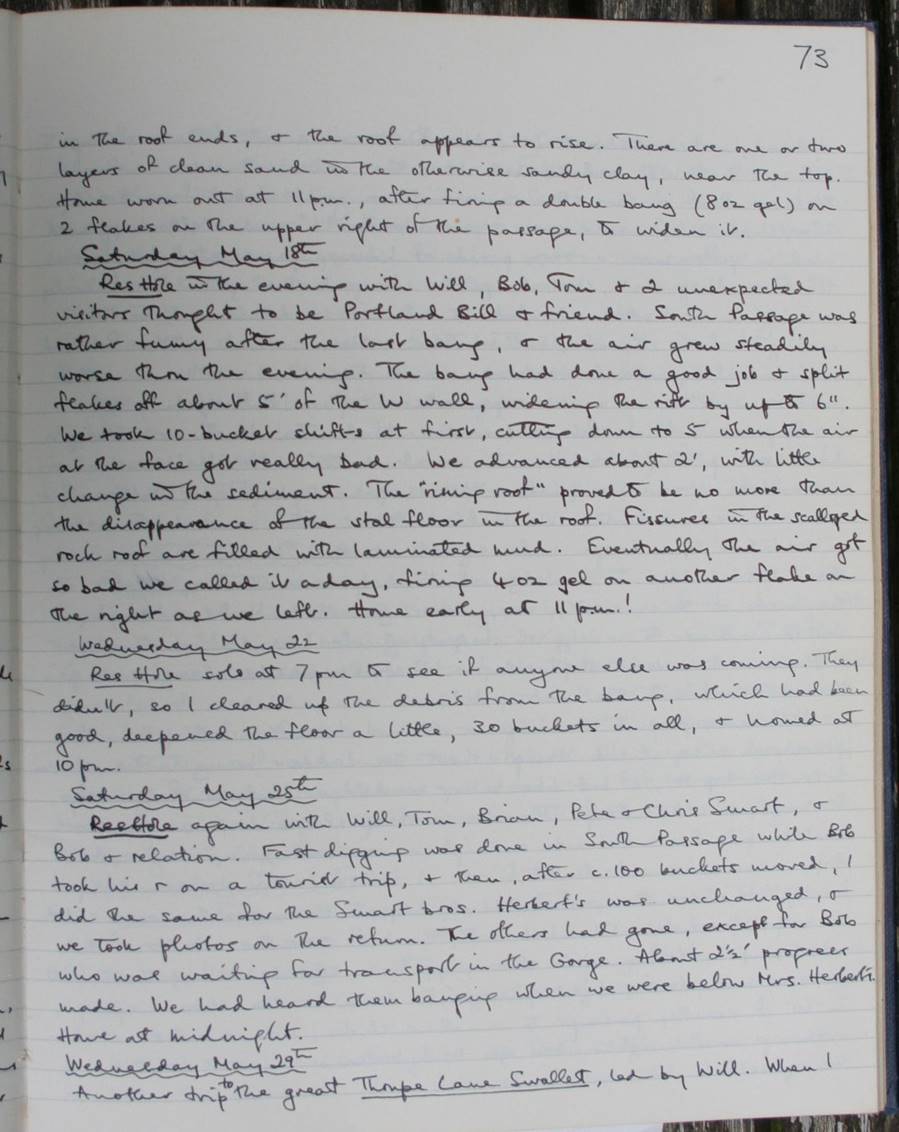 73
in the roof ends, & the roof appears to rise. There are one or two
layers of clean sand in the otherwise sandy clay, near the top.
Home worn out at 11 p.m., after firing a double bang (8 oz gel) on
2 flakes on the upper right of the passage, to widen it.
Saturday May 18th
Res Hole in the evening with Will, Bob, Tom & 2 unexpected
visitors thought to be Portland Bill & friend. South Passage was
rather fumy after the last bang, & the air grew steadily
worse thro the evening. The bang had done a good job & split
flakes off about 5' of the W wall, widening the rift by up to 6".
We took 10-bucket shifts at first, cutting down to 5 when the air
at the face got really bad. We advanced about 2', with little
change in the sediment. The "rising roof" proved to be no more than
the disappearance of the stal floor in the roof. Fissures in the scalloped
rock roof are filled with laminated mud. Eventually the air got
so bad we called it a day, firing 4 oz gel on another flake on
the right as we left. Home early at 11 p.m.!
Wednesday May 22
Res Hole solo at 7 pm to see if anyone else was coming. They
didn't, so I cleared up the debris from the bang, which had been
good, deepened the floor a little, 30 buckets in all, & homed at
10 pm.
Saturday May 25th
Res Hole again with Will, Tom, Brian, Pete & Chris Smart, &
Bob & relation. Fast digging was done in South Passage while Bob
took his r on a tourist trip, & then, after c. 100 buckets moved, I
did the same for the Smart bros. Herbert's was unchanged, &
we took photos on the return. The others had gone, except for Bob
who was waiting for transport in the Gorge. About 2½' progress
made. We had heard them banging when we were below Mrs. Herbert's.
Home at midnight.
Wednesday May 29th
Another trip to the great Thrupe Lane Swallet, led by Will. When I